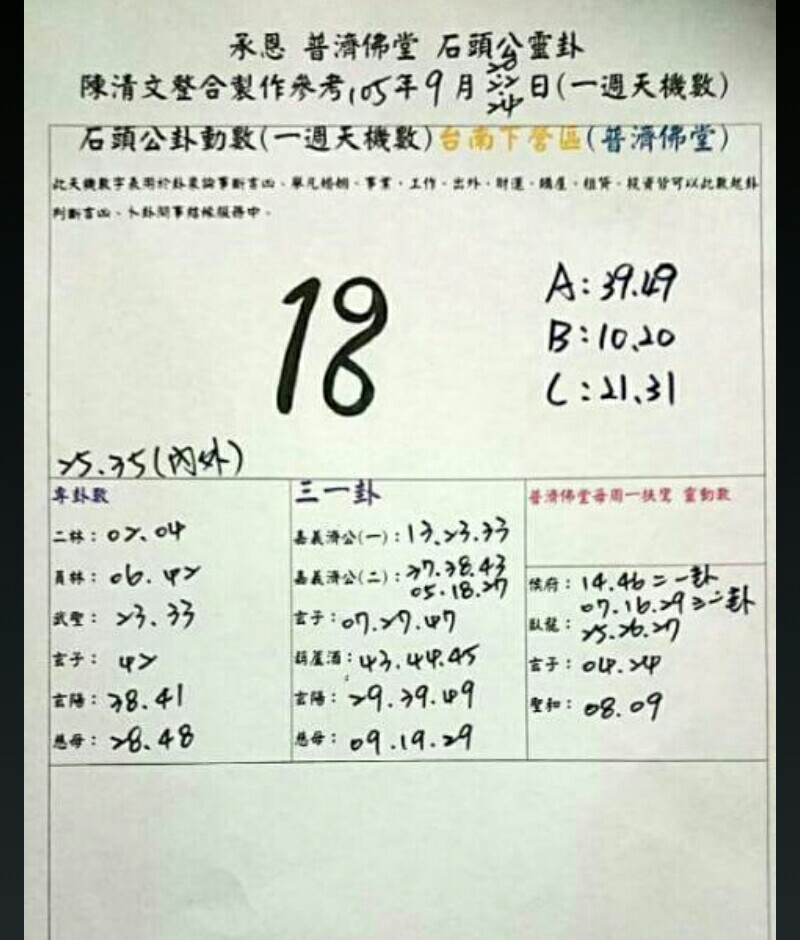 承恩 普濟佛堂 石頭公靈卦
陳清文整合製作參考105年9月20 22 24日(一週天機數)
石頭公卦動數(一週天機數)台南下營區(普濟佛堂)
此天機數字表用於卦象論事斷吉凶、舉凡婚姻、事業、工作、出外、財運、購屋、租賃、投資皆可以此數起卦
判斷吉凶、外卦問事結緣服務中。
18
A:39.49
B:10.20
C:21.31
25.35(內外)
專卦數
二林:02.04
員林:06.42
武聖:23.33
玄子:42
玄陽:38.41
慈母:28.48
三一卦
嘉義濟公(一):13.23.33
嘉義濟公(二):37.38.43
05.18.27
玄子:07.27.47
葫蘆酒:43.44.45
玄陽:29.39.49
慈母:09.19.29
普濟佛堂每周一扶鸞 靈動數
侯府:14.46二一卦
07.16.29三二卦
臥龍:25.26.27
玄子:04.24
聖和:08.09